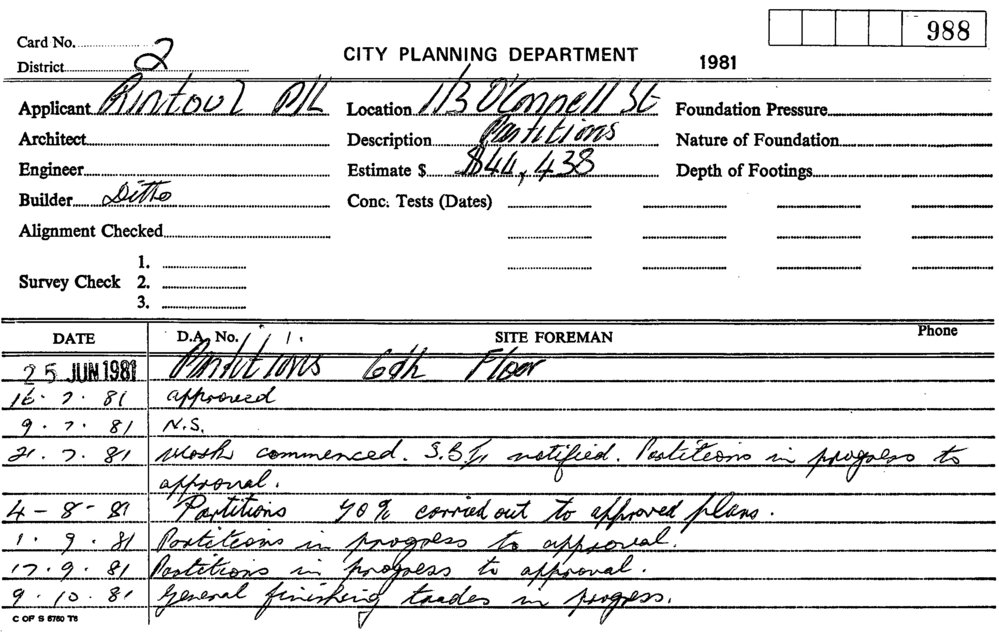 988
Card No. 2
District
CITY PLANNING DEPARTMENT 1981
Applicant Rintoul P/L Location 1/3 O'Connell St Foundation Pressure
Architect Description Partitions Nature of Foundation
Engineer Estimate $ $44,438 Depth of Footings
Builder Ditto Conc. Tests (Dates)
Alignment Checked
1.
Survey Check 2.
3.
DATE D.A. No. SITE FOREMAN Phone
25 JUN 1981 Partitions 6th Floor
16.7.81 approved
9.7.81 N.S.
21.7.81 Work commenced. notified. Partitions in progress to
approval.
4-8-81 Partitions 40% carried out to approved plans.
1.9.81 Partitions in progress to approval.
17.9.81 Partitions in progress to approval.
9.10.81 General finishing trades in progress.
C OF S 5760 T6